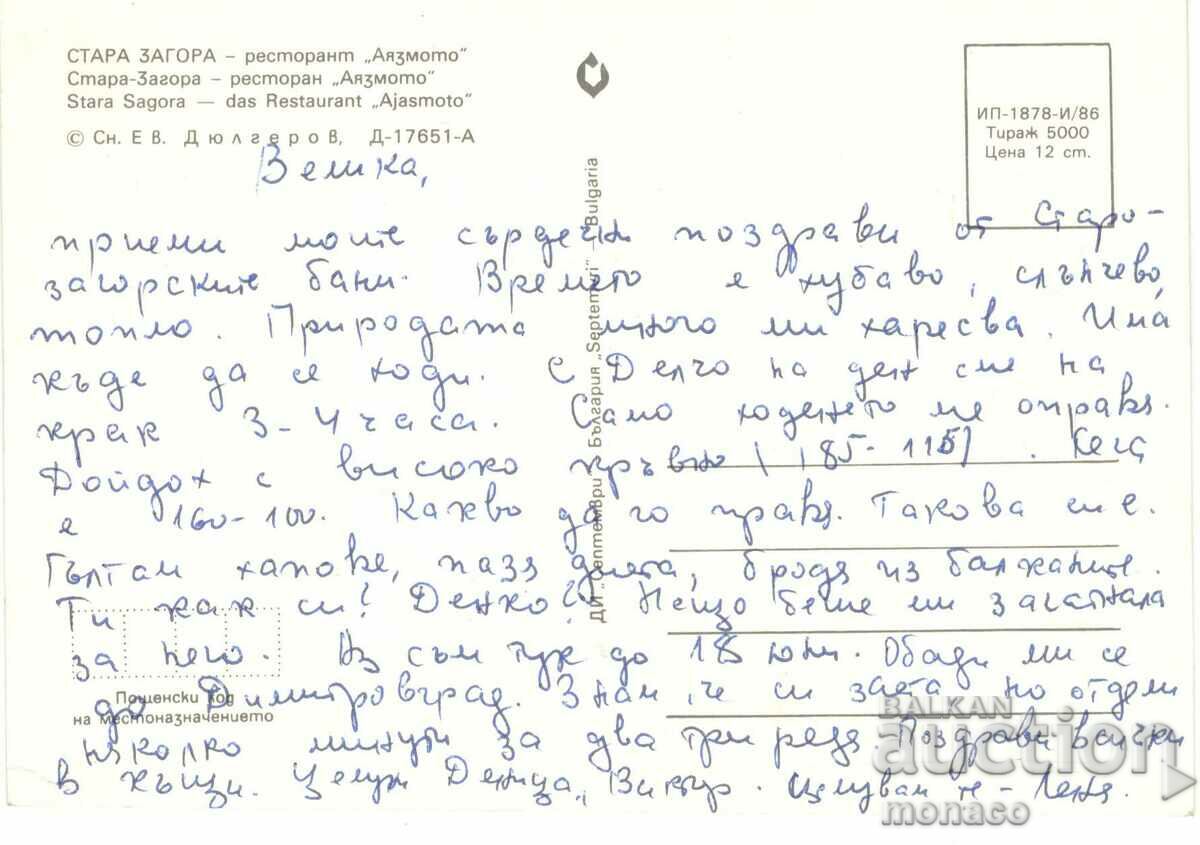 СТАРА ЗАГОРА – ресторант „Аязмото“
Стара-Загора – ресторан „Аязмото“
Stara Sagora — das Restaurant „Ajasmoto“
© Сн. Е В. Дюлгеров, Д-17651-А
ИП-1878-И/86
Тираж 5000
Цена 12 ст.
Велика,
приеми моите сърдечни поздрави от Старо-
загорските бани. Времето е хубаво, слънчево,
топло. Природата много ми харесва. Има
къде да се ходи. С Делчо на ден сме на
крак 3-4 часа. Само ходенето ме оправя.
Дойдох с високо кръвно (185-115). Сега
е 160-100. Какво да го правя. Такова си е.
Гълтам хапове, пазя диета, бродя из балканите.
Ти как си? Денко? Нещо беше ми загатнала
за него. Аз съм тук до 18 юни. Обади ми се
до Димитровград. Знам, че си заета но отдели
няколко минути за два три реда. Поздрави всички
в къщи. Целуни Деница, Виктър. Целувам те - Леня.
ДИ „Септември“ България „Septemvri“ – Bulgaria
Пощенски код
на местоназначението
BALKAN
auction
monaco